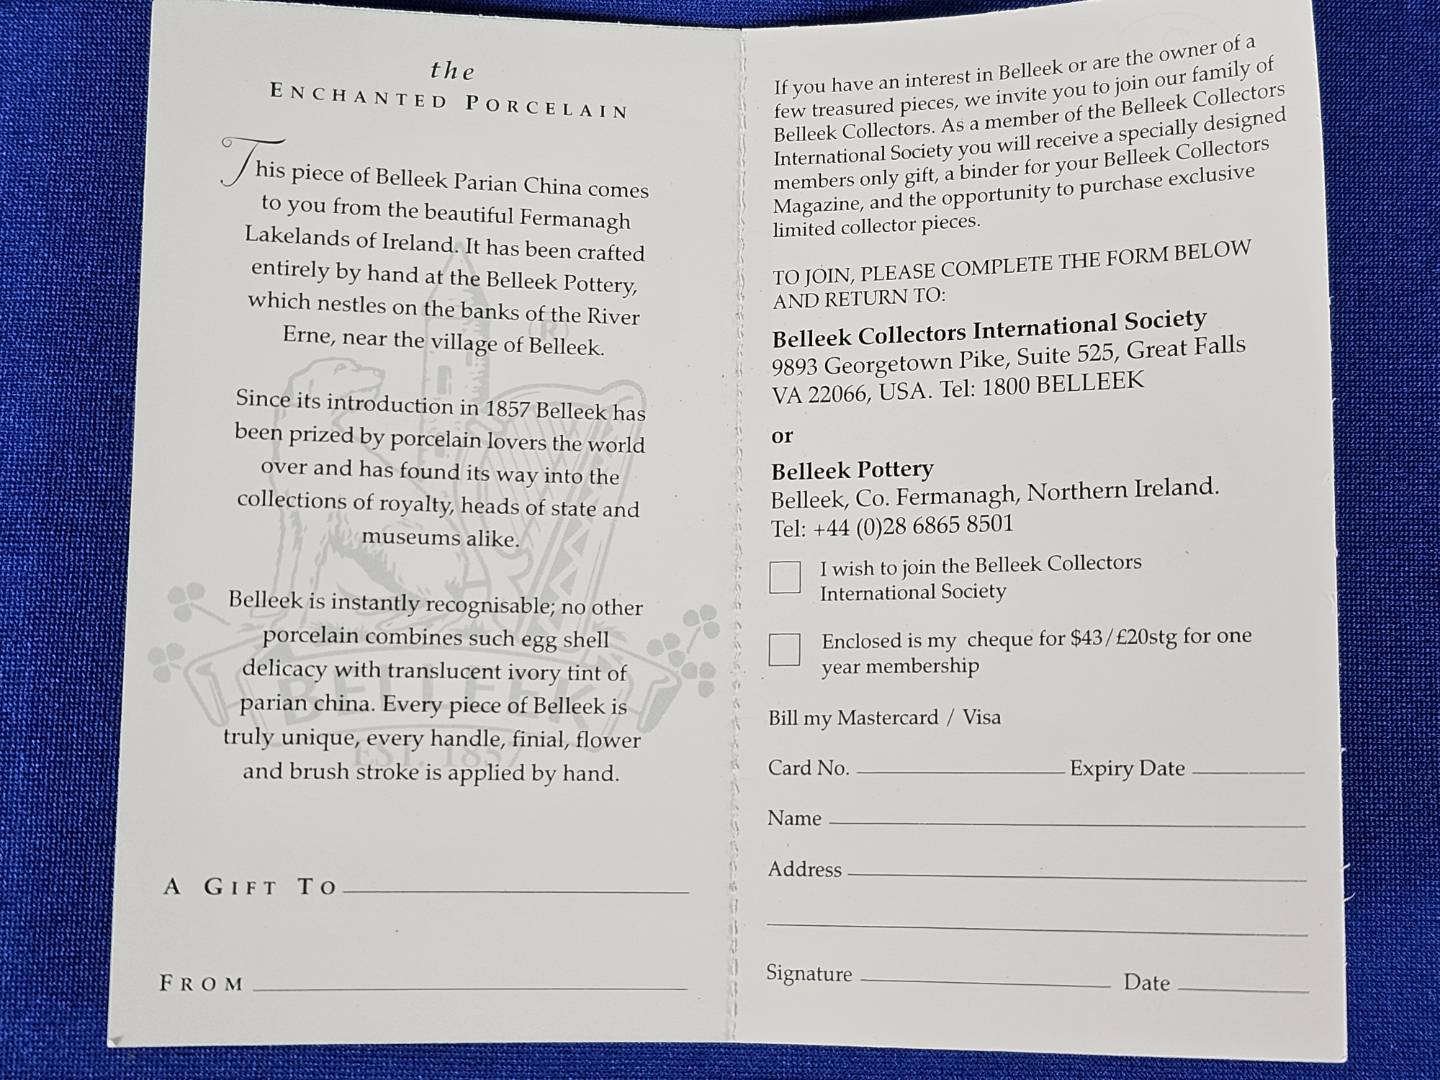 the
ENCHANTED PORCELAIN
This piece of Belleek Parian China comes
to you from the beautiful Fermanagh
Lakelands of Ireland. It has been crafted
entirely by hand at the Belleek Pottery,
which nestles on the banks of the River
Erne, near the village of Belleek.
Since its introduction in 1857 Belleek has
been prized by porcelain lovers the world
over and has found its way into the
collections of royalty, heads of state and
museums alike.
Belleek is instantly recognisable; no other
porcelain combines such egg shell
delicacy with translucent ivory tint of
parian china. Every piece of Belleek is
truly unique, every handle, finial, flower
and brush stroke is applied by hand.
®
BELLEEK
EST. 1857
A GIFT TO
FROM
If you have an interest in Belleek or are the owner of a
few treasured pieces, we invite you to join our family of
Belleek Collectors. As a member of the Belleek Collectors
International Society you will receive a specially designed
members only gift, a binder for your Belleek Collectors
Magazine, and the opportunity to purchase exclusive
limited collector pieces.
TO JOIN, PLEASE COMPLETE THE FORM BELOW
AND RETURN TO:
Belleek Collectors International Society
9893 Georgetown Pike, Suite 525, Great Falls
VA 22066, USA. Tel: 1800 BELLEEK
or
Belleek Pottery
Belleek, Co. Fermanagh, Northern Ireland.
Tel: +44 (0)28 6865 8501
I wish to join the Belleek Collectors
International Society
Enclosed is my cheque for $43/£20stg for one
year membership
Bill my Mastercard / Visa
Card No. Expiry Date
Name
Address
Signature Date